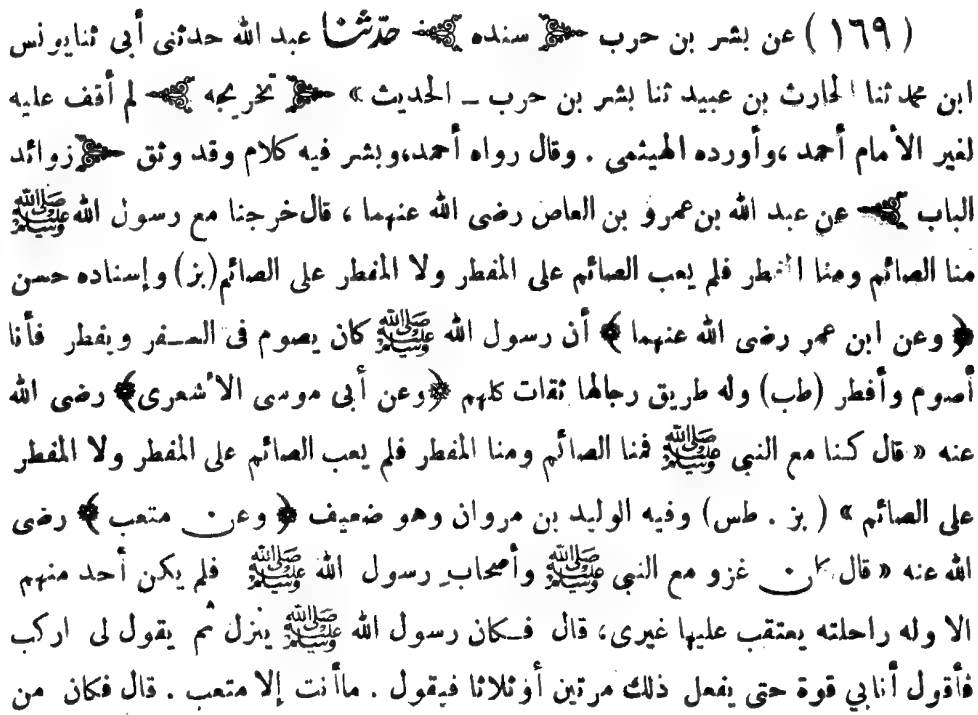 ( ١٦٩ ) عن بشر بن حرب ﴿ سنده ﴾ حدّثنا عبد الله حدثنى أبى ثنا يونس
ابن محمد ثنا الحارث بن عبيد ثنا بشر بن حرب ــ الحديث » ﴿ تخريجه ﴾ لم أقف عليه
لغير الأمام أحمد ،وأورده الهيثمى . وقال رواه أحمد،وبشر فيه كلام وقد وثق ﴿ زوائد
الباب ﴾ عن عبد الله بن عمرو بن العاص رضى الله عنهما ، قال خرجنا مع رسول الله ﷺ
منا الصائم ومنا المفطر فلم يعب الصائم على المفطر ولا المفطر على الصائم (بز) وإسناده حسن
﴿ وعن ابن عمر رضى الله عنهما ﴾ أن رسول الله ﷺ كان يصوم فى السـفر ويفطر فأنا
أصوم وأفطر (طب) وله طريق رجالها ثقات كلهم ﴿وعن أبى موسى الأشعرى﴾ رضى الله
عنه « قال كنا مع النبى ﷺ فمنا الصائم ومنا المفطر فلم يعب الصائم على المفطر ولا المفطر
على الصائم » ( بز . طس) وفيه الوليد بن مروان وهو ضعيف ﴿ وعن متعب ﴾ رضى
الله عنه « قال كان غزو مع النبى ﷺ وأصحاب رسول الله ﷺ فلم يكن أحد منهم
الا وله راحلته يعتقب عليها غيرى، قال فـكان رسول الله ﷺ ينزل ثم يقول لى اركب
فأقول أنابي قوة حتى يفعل ذلك مرتين أوثلاثا فيقول . ماأنت إلا متعب . قال فكان من